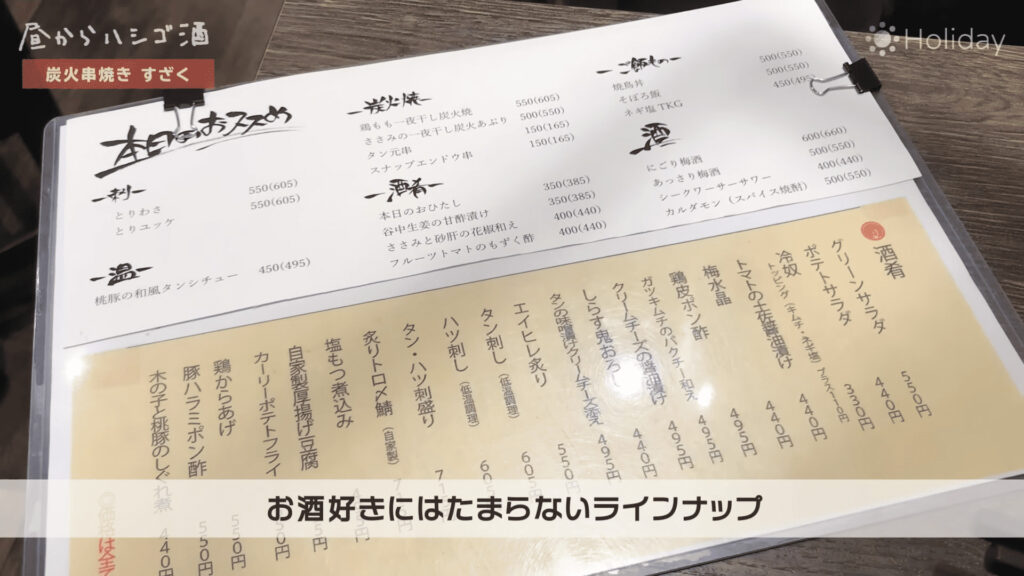 昼からハシゴ酒
炭火串焼き すざく
Holiday
本日のおススメ
刺
とりわさ 550(605)
とりユッケ 550(605)
温
桃豚の和風タンシチュー 450(495)
炭火焼
鶏もも一夜干し炭火焼 550(605)
ささみの一夜干し炭火あぶり 500(550)
タン元串 150(165)
スナップエンドウ串 150(165)
酒肴
本日のおひたし 350(385)
谷中生姜の甘酢漬け 350(385)
ささみと砂肝の花椒和え 400(440)
フルーツトマトのもずく酢 400(440)
ご飯もの
焼鳥丼 500(550)
そぼろ飯 500(550)
ネギ塩TKG 450(495)
酒
にごり梅酒 600(660)
あっさり梅酒 500(550)
シークワーサーサワー 400(440)
カルダモン(スパイス焼酎) 500(550)
酒肴
グリーンサラダ 550円
ポテトサラダ 440円
冷奴 330円
トッピング(キムチ、ネギ塩)プラス110円
トマトの土佐醤油漬け 440円
梅水晶 440円
鶏皮ポン酢 495円
ガツキムチのパクチー和え 495円
クリームチーズの味噌漬け 440円
しらす鬼おろし 495円
タンの味噌漬クリームチーズ添え 550円
エイヒレ炙り 605円
タン刺し(低温調理)
ハツ刺し(低温調理)
タン・ハツ刺盛り
炙りトロ〆鯖(自家製)
塩もつ煮込み
自家製厚揚げ豆腐
カーリーポテトフライ 550円
鶏からあげ 550円
豚ハラミポン酢 550円
木の子と桃豚のしぐれ煮 440円
お酒好きにはたまらないラインナップ